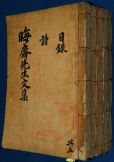 晦齋先生文集
目錄
詩
共五